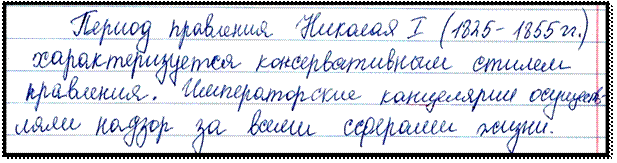 Период правления Николая I (1825-1855 гг.)
характеризуется консервативным стилем
правления. Императорские канцелярии осуществ-
ляли надзор за всеми сферами жизни.